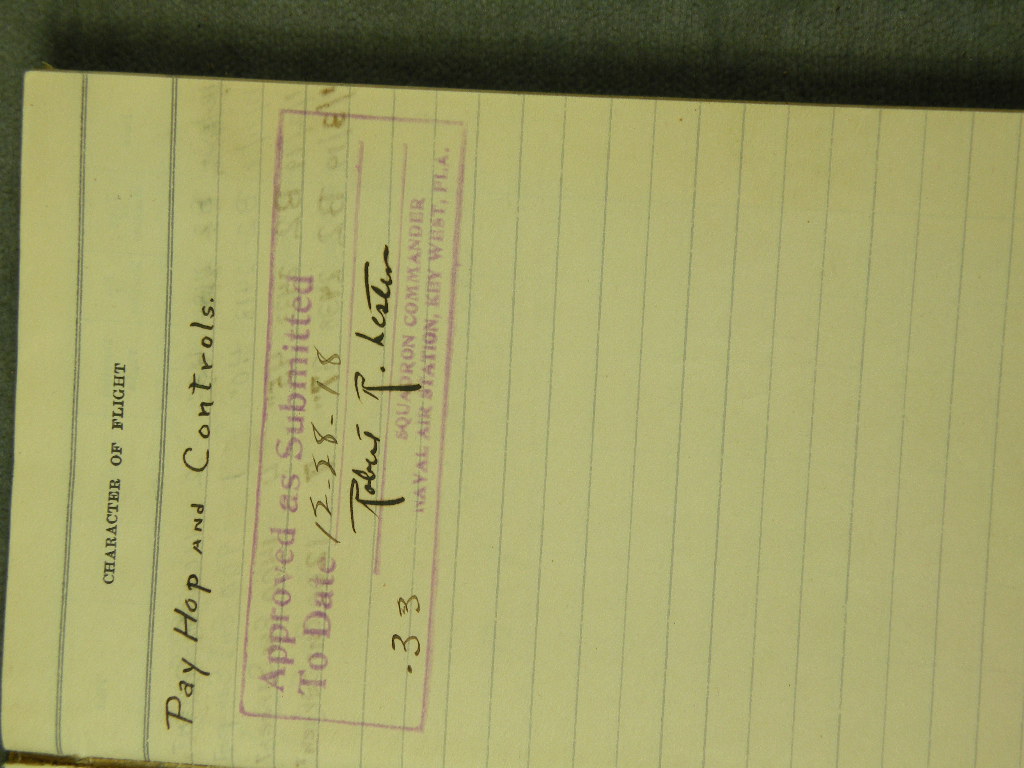 CHARACTER OF FLIGHT
Pay Hop AND Controls.
Approved as Submitted
To Date 12-28-18
Robert R. Lester
.33
SQUADRON COMMANDER
NAVAL AIR STATION, KEY WEST, FLA.